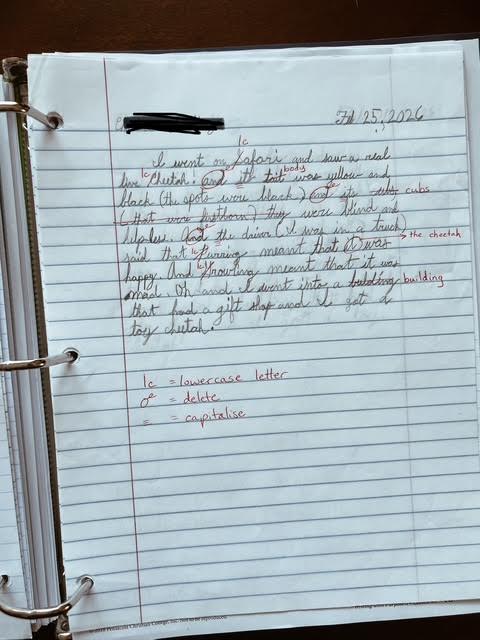 Feb 25, 2026
lc
I went on Safari and saw a real
lc body
live Cheetah. and it's was yellow and
black (the spots were black) and its cubs
(that were firstborn) they were blind and
helpless. And the driver (I was in a truck)
lc the cheetah
said that Purring meant that it was
lc
happy. And Growling meant that it was
mad. Oh and I went into a building building
that had a gift shop and I got a
toy cheetah.
lc = lowercase letter
= delete
= capitalise